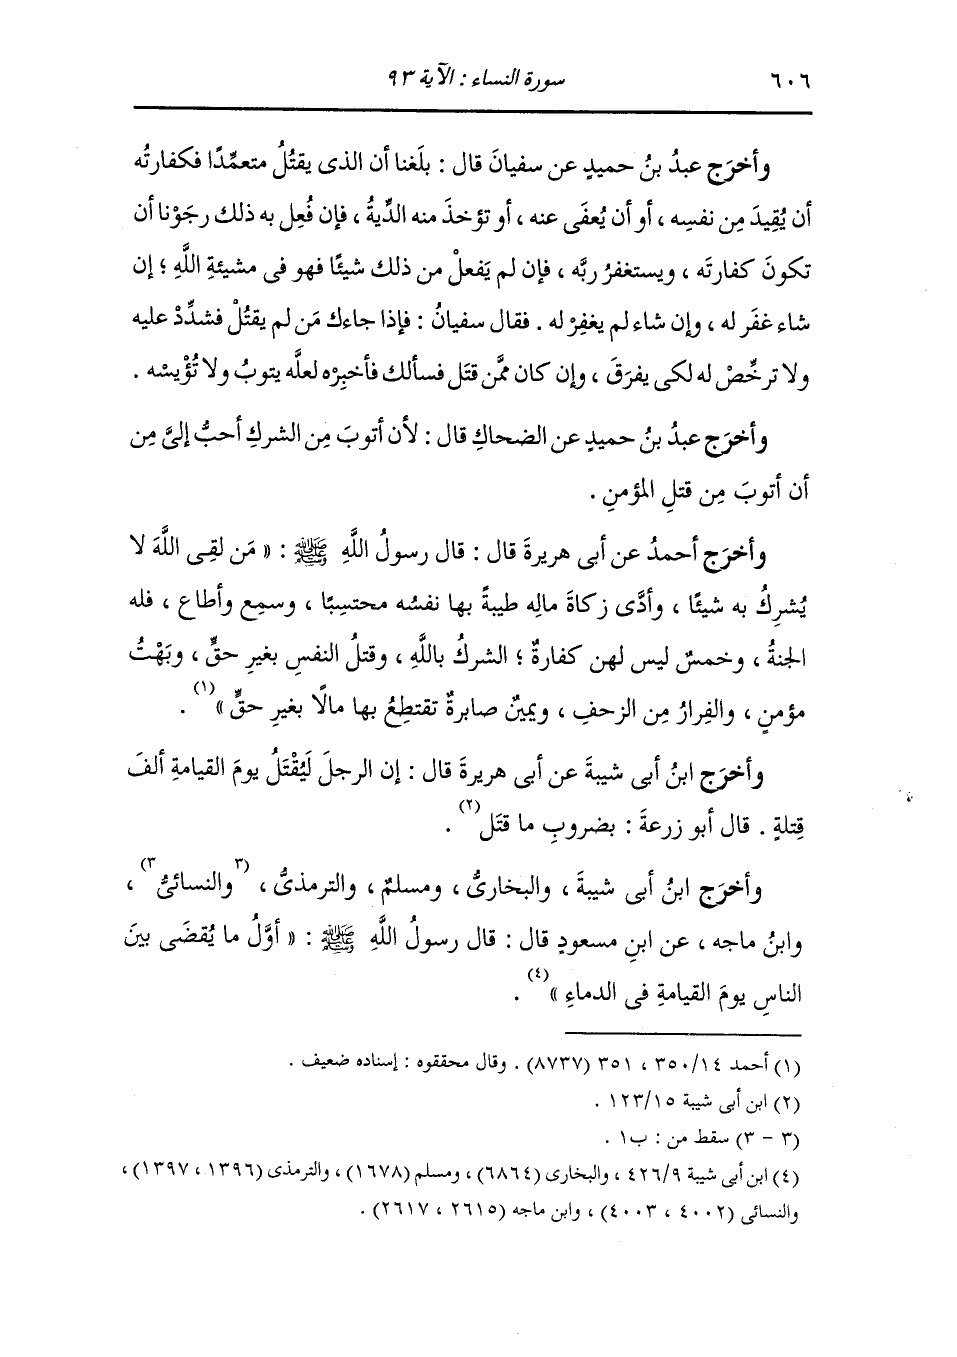 ٦٠٦ سورة النساء : الآية ٩٣
وأخرَج عبدُ بنُ حميدٍ عن سفيانَ قال : بلَغنا أن الذى يقتُلُ متعمِّدًا فكفارتُه
أن يُقِيدَ مِن نفسِه ، أو أن يُعفَى عنه ، أو تؤخذَ منه الدِّيةُ ، فإن فُعِل به ذلك رجَوْنا أن
تكونَ كفارتَه ، ويستغفرُ ربَّه ، فإن لم يَفعلْ من ذلك شيئًا فهو فى مشيئةِ اللَّهِ ؛ إن
شاء غفَر له ، وإن شاء لم يغفِرْ له . فقال سفيانُ : فإذا جاءك مَن لم يقتُلْ فشدِّدْ عليه
ولا ترخِّصْ له لكى يفرَقَ ، وإن كان ممَّن قتَل فسألك فأخبِرْه لعلَّه يتوبُ ولا تُؤْيسْه .
وأخرَج عبدُ بنُ حميدٍ عن الضحاكِ قال : لأن أتوبَ مِن الشركِ أحبُّ إلىَّ مِن
أن أتوبَ مِن قتلِ المؤمنِ .
وأخرَج أحمدُ عن أبى هريرةَ قال : قال رسولُ اللَّهِ ﷺ : « مَن لقِى اللَّهَ لا
يُشرِكُ به شيئًا ، وأدَّى زكاةَ مالِه طيبةً بها نفسُه محتسِبًا ، وسمِع وأطاع ، فله
الجنةُ ، وخمسٌ ليس لهن كفارةٌ ؛ الشركُ باللَّهِ ، وقتلُ النفسِ بغيرِ حقٍّ ، وبَهْتُ
مؤمنٍ ، والفِرارُ مِن الزحفِ ، ويمينٌ صابرةٌ تقتطِعُ بها مالًا بغيرِ حقٍّ »(١) .
وأخرَج ابنُ أبى شيبةَ عن أبى هريرةَ قال : إن الرجلَ لَيُقْتَلُ يومَ القيامةِ ألفَ
قِتلةٍ . قال أبو زرعةَ : بضروبِ ما قتَل(٢) .
وأخرَج ابنُ أبى شيبةَ ، والبخارىُّ ، ومسلمٌ ، والترمذىُّ ، (٣والنسائىُّ٣) ،
وابنُ ماجه ، عن ابنِ مسعودٍ قال : قال رسولُ اللَّهِ ﷺ : « أوَّلُ ما يُقضَى بينَ
الناسِ يومَ القيامةِ فى الدماءِ »(٤) .
(١) أحمد ٣٥٠/١٤ ، ٣٥١ (٨٧٣٧) . وقال محققوه : إسناده ضعيف .
(٢) ابن أبى شيبة ١٢٣/١٥ .
(٣ - ٣) سقط من : ب١ .
(٤) ابن أبى شيبة ٤٢٦/٩ ، والبخارى (٦٨٦٤) ، ومسلم (١٦٧٨) ، والترمذى (١٣٩٦ ، ١٣٩٧) ،
والنسائى (٤٠٠٢ ، ٤٠٠٣) ، وابن ماجه (٢٦١٥ ، ٢٦١٧) .